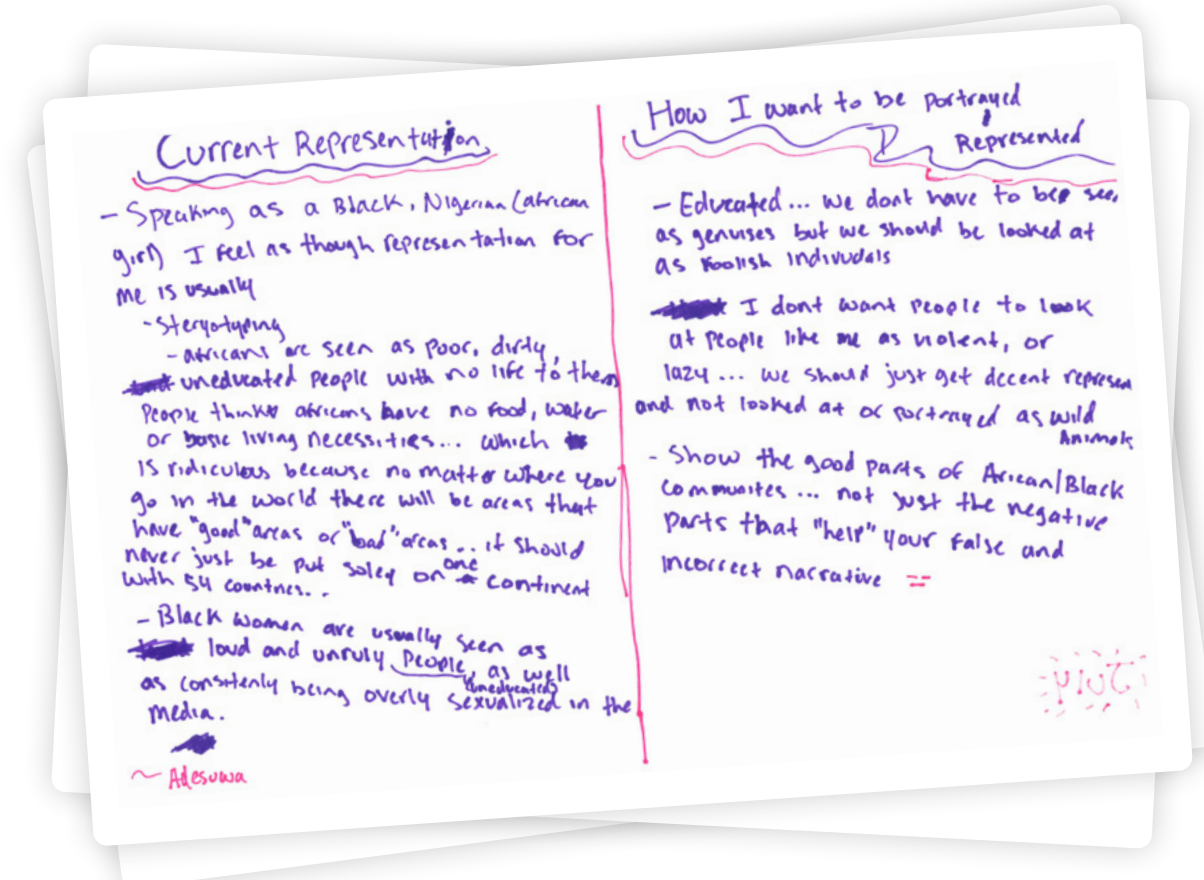 Current Representation
- Speaking as a Black, Nigerian (african
girl) I feel as though representation for
me is usually
- Steryotyping
- africans are seen as poor, dirty,
uneducated people with no life to them
People think africans have no food, water
or basic living necessities... which
is ridiculous because no matter where you
go in the world there will be areas that
have "good" areas or "bad" areas... it should
never just be put soley on one continent
with 54 countries..
- Black women are usually seen as
loud and unruly People, as well
(uneducated)
as consitenly being overly sexualized in the
media.
~ Adesuwa
How I want to be portrayed
Represented
- Educated... we dont have to be see
as genuises but we should be looked at
as foolish indivudals
I dont want people to look
at people like me as violent, or
lazy... we should just get decent represen
and not looked at or portrayed as wild
Animals
- Show the good parts of Arican/Black
communites... not just the negative
parts that "help" your false and
incorrect narrative